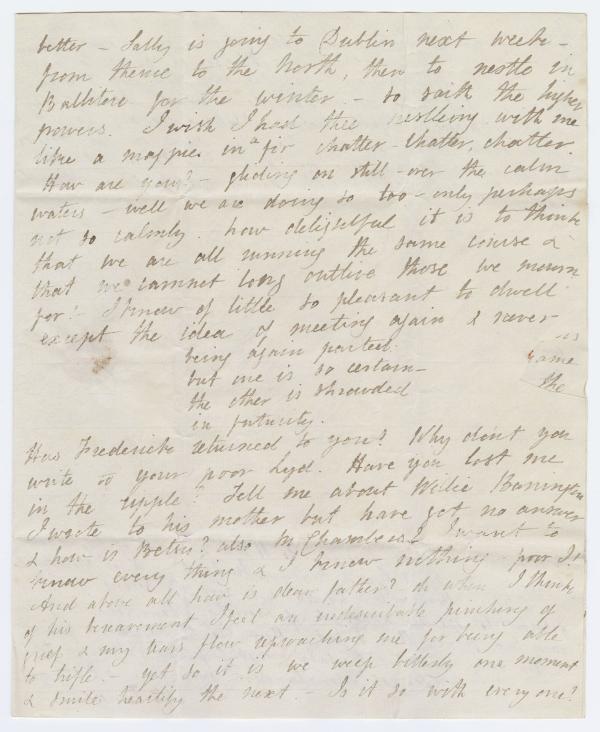 better – Sally is going to Dublin next week –
from thence to the North, then to nestle in
Ballitore for the winter – so saith the higher
powers. I wish I had thee nestling with me
like a magpie in a fir chatter – chatter, chatter.
How are you? – gliding on still – over the calm
waters – well we are doing so too – only perhaps
not so calmly. how delightful it is to think
that we are all running the same course &
that we cannot long outlive those we mourn
for! – I know of little so pleasant to dwell
except the idea of meeting again & never
being again parted.
but one is so certain –
the other is shrouded
in futurity.
is
same
the
Has Frederick returned to you? Why don't you
write to your poor Lyd. Have you lost me
in the ripple? Tell me about Willie Barrington
I wrote to his mother but have got no answer
& how is Betsy? also M Chambers? I want to
know every thing & I know nothing – poor I!
And above all how is dear father? oh when I think
of his bereavement I feel an indescribable pinching of
grief & my tears flow upbraiding me for being able
to trifle. – yet so it is we weep bitterly one moment
& smile heartily the next. – Is it so with every one?